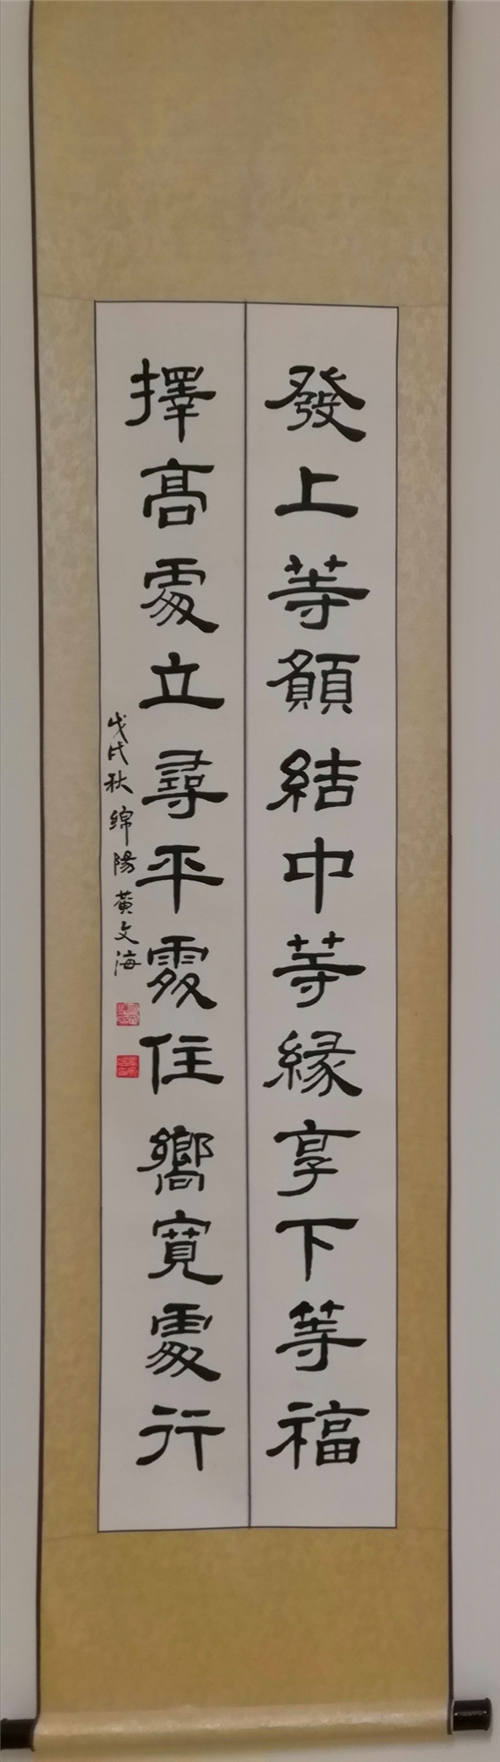 發上等願結中等緣享下等福
擇高處立尋平處住嚮寬處行
戊戌秋绵陽黃文海